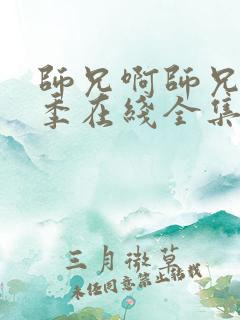 師兄啊師兄
季在綫全集
三月微草
未經同意禁止轉載